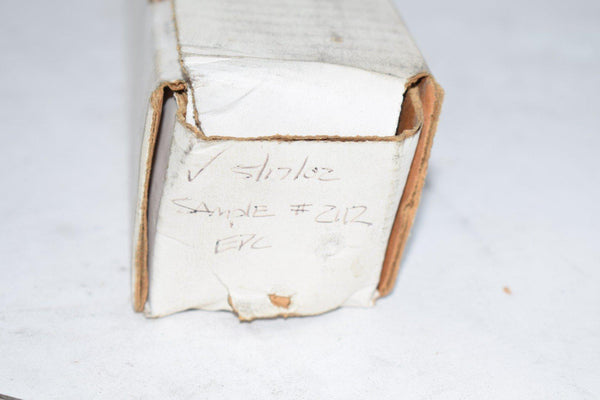 ✓ 5/17/02
SAMPLE # 2112
EPC